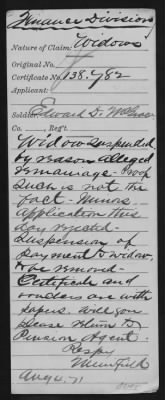 Finance Division
Nature of Claim: Widows
Original No.
Certificate No. 138,482
Applicant:
Soldier: Edward D.
Co. , Reg't.
Widow suspended
by reason alleged
remarriage. Proof
such is not the
fact. Minors
application this
day rejected.
Suspension of
payment to widow
to be removed
Certificate and
vouchers are with
papers. Will you
please return to
Pension Agent.
Respy
Aug 4, 71